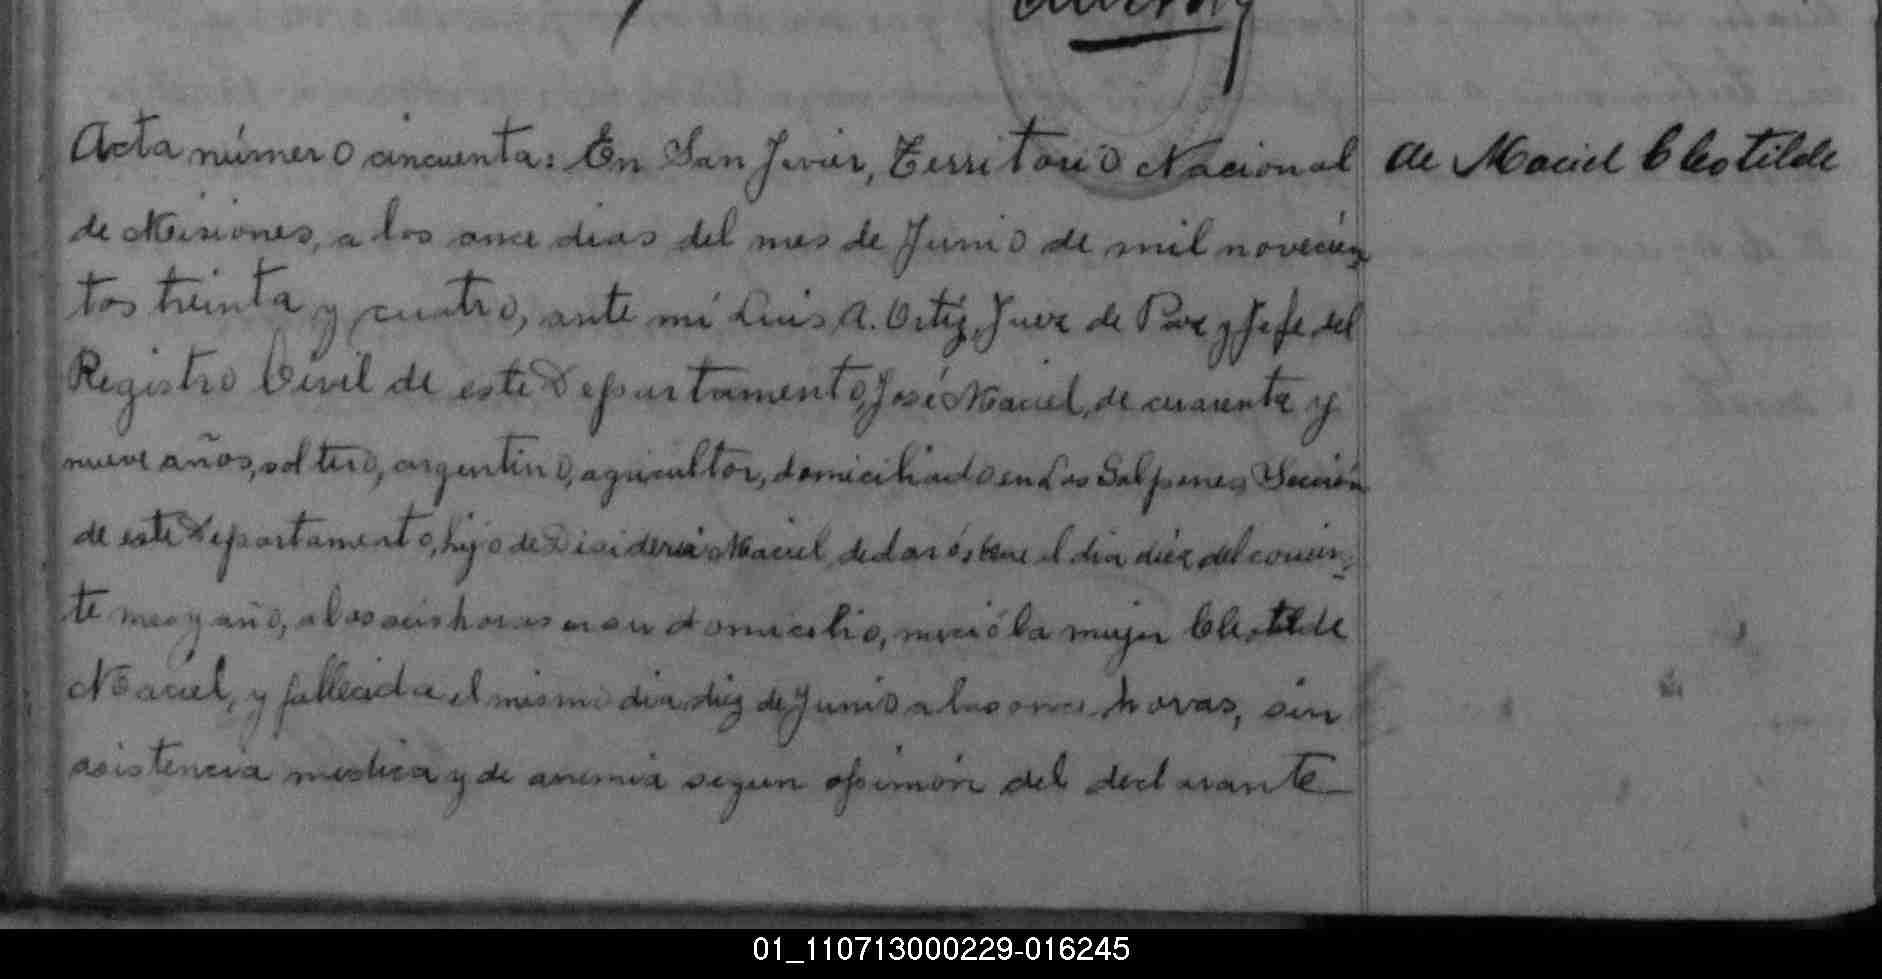 Acta número cincuenta: En San Javier, Territorio Nacional
de Maciel Cleotilde
de Misiones, a los once dias del mes de Junio de mil novecien-
tos treinta y cuatro, ante mi Luis A. Ortíz, Juez de Paz y Jefe del
Registro Civil de este Departamento, José Maciel, de cuarenta y
nueve años, soltero, argentino, agricultor, domiciliado en Los Galpones Sección
de este Departamento, hijo de Maciel, declaró que el dia diez del corrien-
te mes y año, a las seis horas en su domicilio, nació la mujer Cleotilde
Maciel, y fallecida el mismo dia diez de Junio a las once horas, sin
asistencia medica y de anemia segun opinión del declarante
01_110713000229-016245